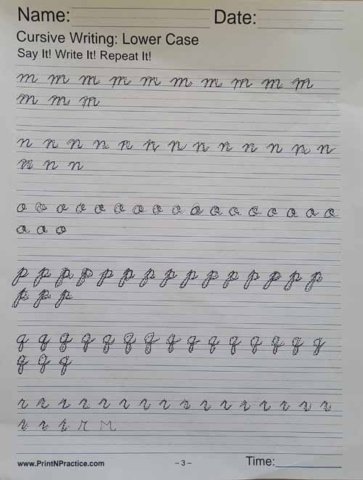 Name: Date:
Cursive Writing: Lower Case
Say It! Write It! Repeat It!
m m m m m m m m m m
m m m
n n n n n n n n n n n n n
n n n
o o o o o o o o o o o o o o o o o
o o o
p p p p p p p p p p p p p p p
p p p
q q q q q q q q q q q q q q q
q q q
r r r r r r r r r r r r r r r r
r r r r
www.PrintNPractice.com - 3 - Time: